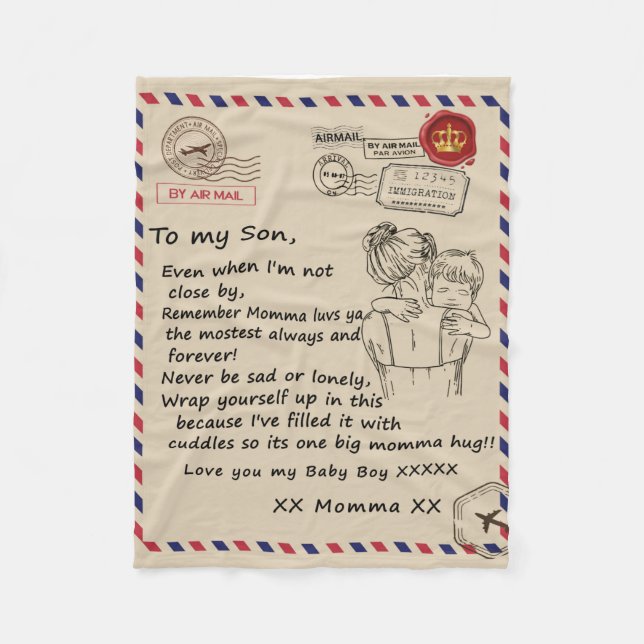 POST DEPARTMENT • AIR MAIL • SPECIAL
AIRMAIL
BY AIR MAIL
PAR AVION
ARRIVAL
12345
IMMIGRATION
BY AIR MAIL
To my Son,
Even when I'm not
close by,
Remember Momma luvs ya
the mostest always and
forever!
Never be sad or lonely,
Wrap yourself up in this
because I've filled it with
cuddles so its one big momma hug!!
Love you my Baby Boy XXXXX
XX Momma XX